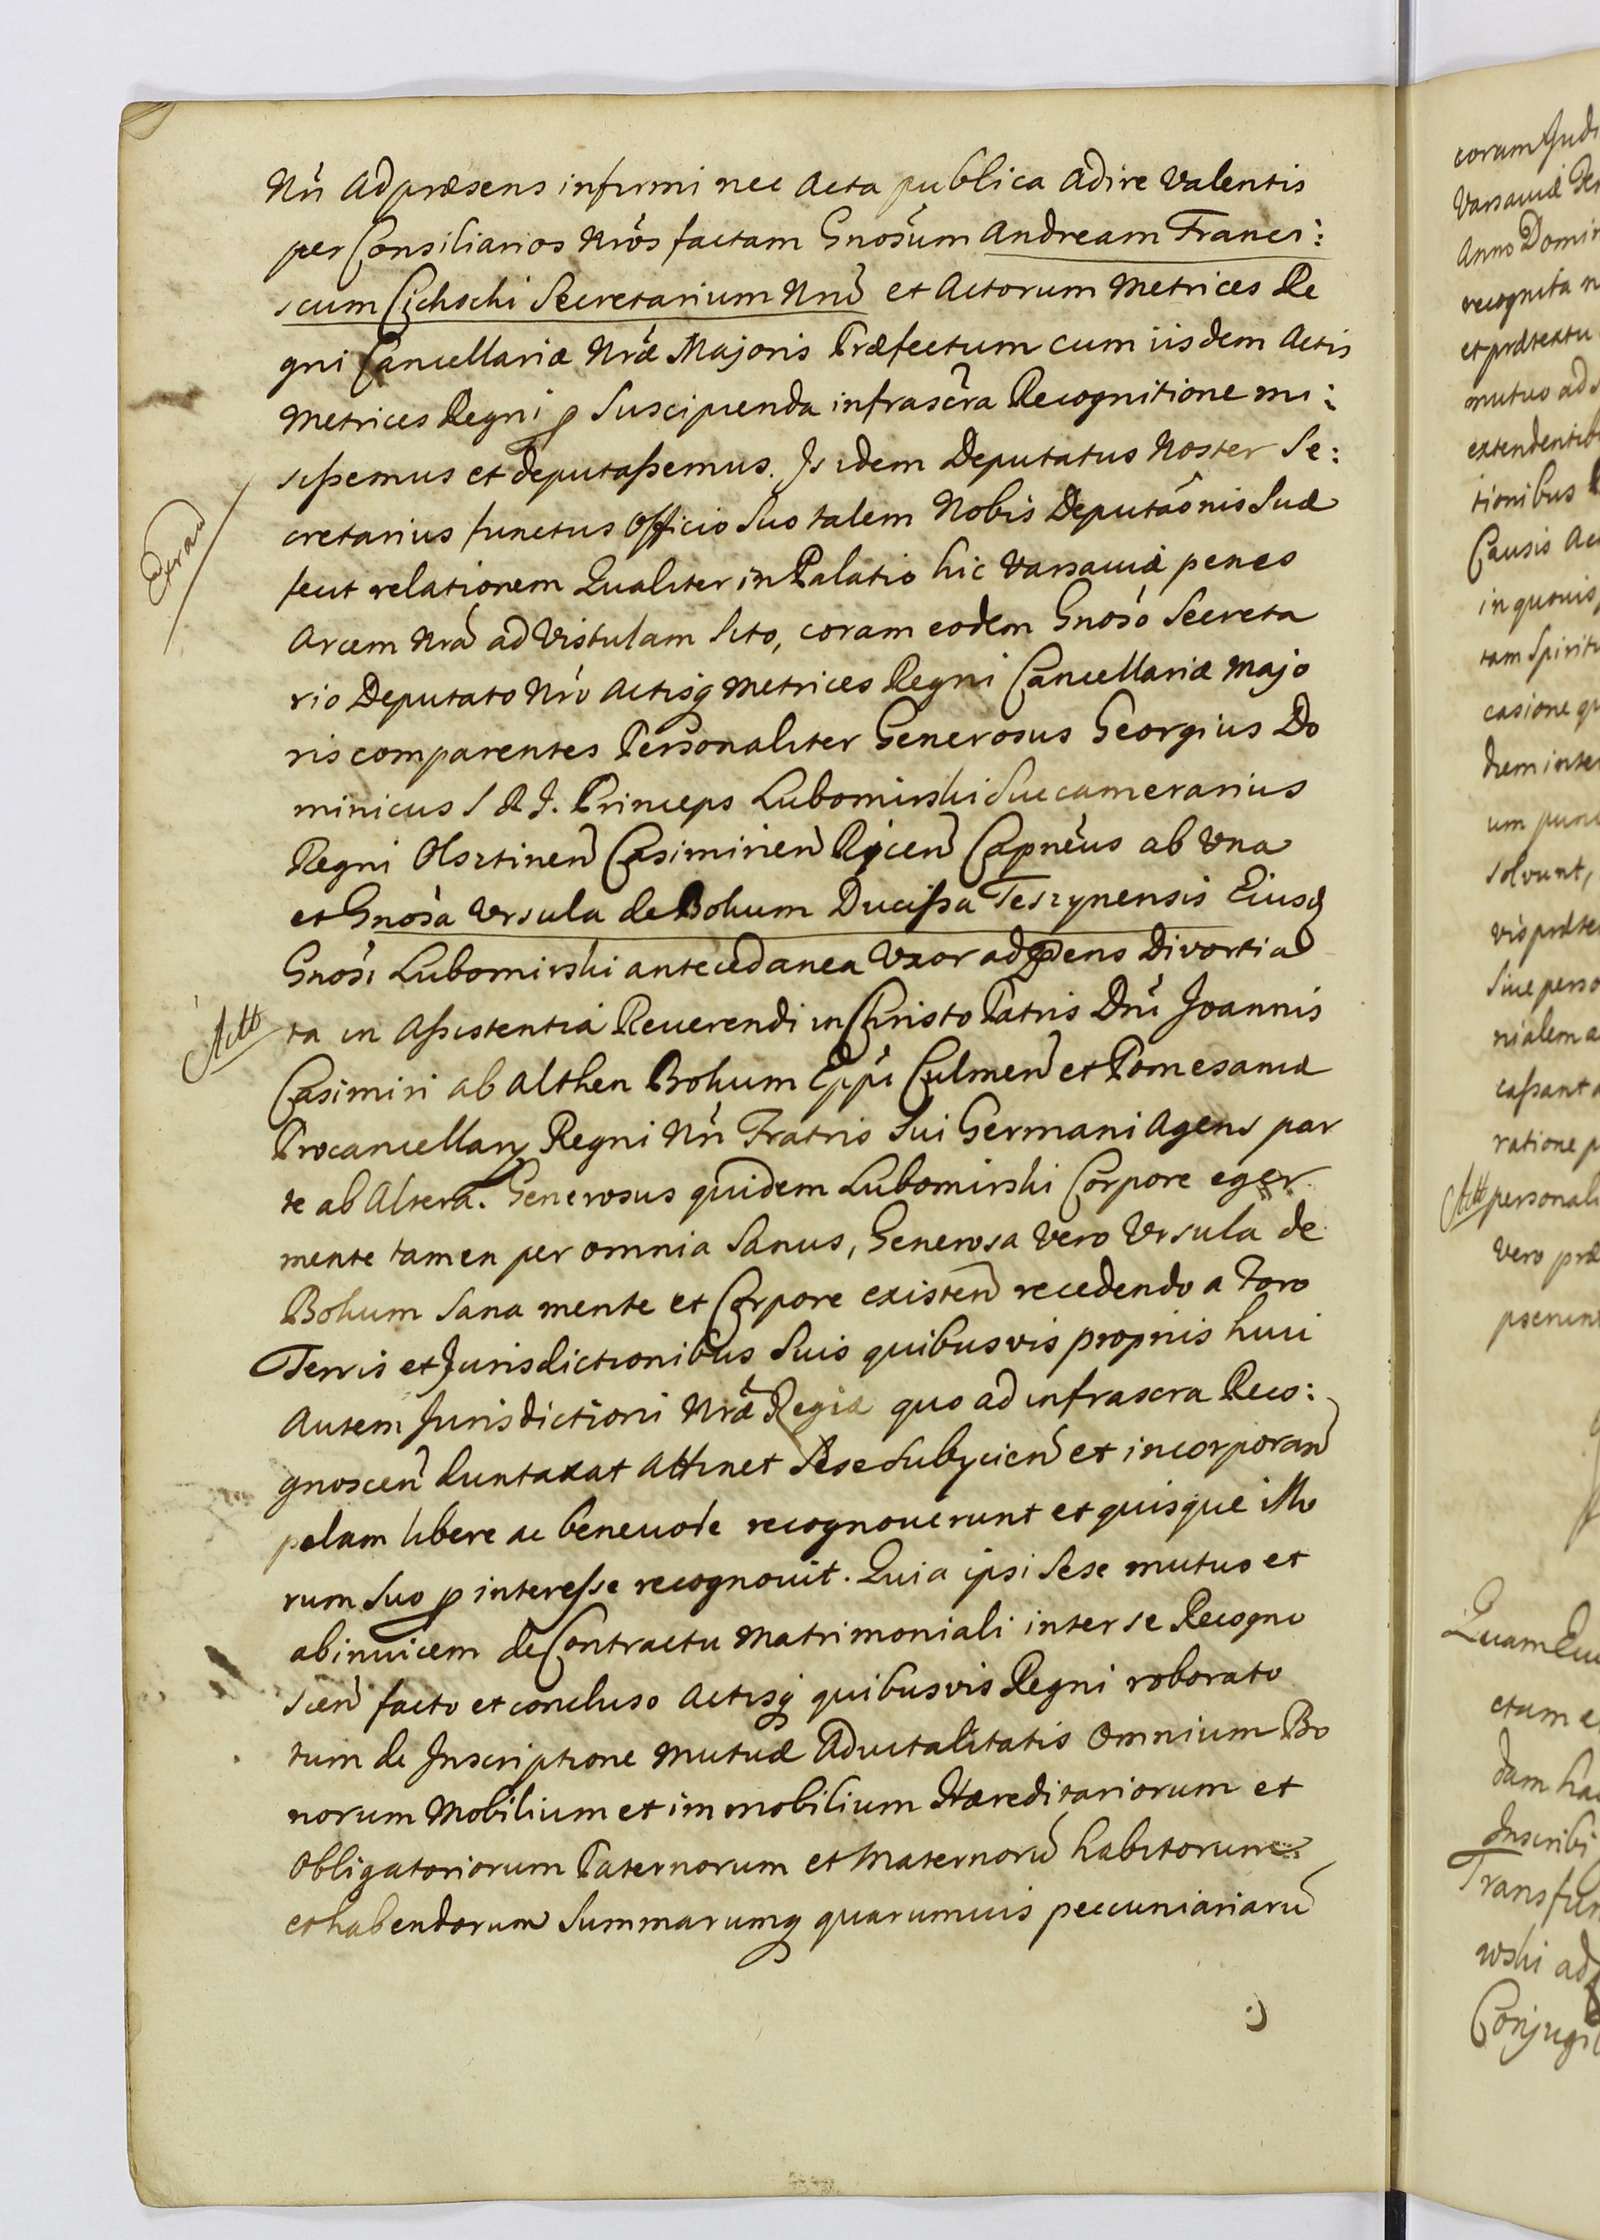 Nri Ad præsens infirmi nec Acta publica Adire Valentis
per Consiliarios Nros factam Gnosum Andream Franci:
scum Cichochi Secretarium Nrum et Actorum Metrices Re
gni Cancellariæ Nræ Majoris Præfectum cum iisdem Actis
Metrices Regni p Suscipienda infrascra Recognitione mi:
sissemus et deputassemus. Is idem Deputatus Noster Se:
cretarius functus Officio Suo talem Nobis Deputaonis Suæ
fecit relationem Qualiter in Palatio hic Varsaviæ penes
Arcem Nra ad Vistulam Sito, coram eodem Gnoso Secreta
rio Deputato Nro Actisq Metrices Regni Cancellariæ Majo
ris comparentes Personaliter Generosus Georgius Do
minicus S R I. Princeps Lubomirski Succamerarius
Regni Olsztinen Casimirien Ricen Capneus ab Una
et Gnosa Ursula de Bohum Ducissa Teszynensis Eiusq
Gnosi Lubomirski antecedanea Uxor ad præns Divortia
Actt
ta in Assistentia Reuerendi in Christo Patris Dni Joannis
Casimiri ab Althen Bohum Eppi Culmen et Pomesaniæ
Procancellarij Regni Nri Fratris Sui Germani Agens par
te ab Altera. Generosus quidem Lubomirski Corpore eger
mente tamen per omnia Sanus, Generosa Vero Ursula de
Bohum Sana mente et Corpore existen recedendo a Foro
Terris et Jurisdictionibus Suis quibusvis propriis huic
Autem Jurisdictioni Nræ Regiæ quo ad infrascra Reco:
gnoscen duntaxat Attinet Sese Subijcien et incorporan
palam libere ac beneuole recognouerunt et quisque illo
rum Suo p interesse recognouit. Quia ipsi Sese mutuo et
abinuicem de Contractu Matrimoniali inter se Recogno
scen facto et concluso Actisq quibusvis Regni roborato
tum de Inscriptione Mutuæ Aduitalitatis Omnium Bo
norum Mobilium et immobilium Hæreditariorum et
Obligatoriorum Paternorum et Maternoru habitorum
et habendorum Summarumq quarumuis peccuniariaru